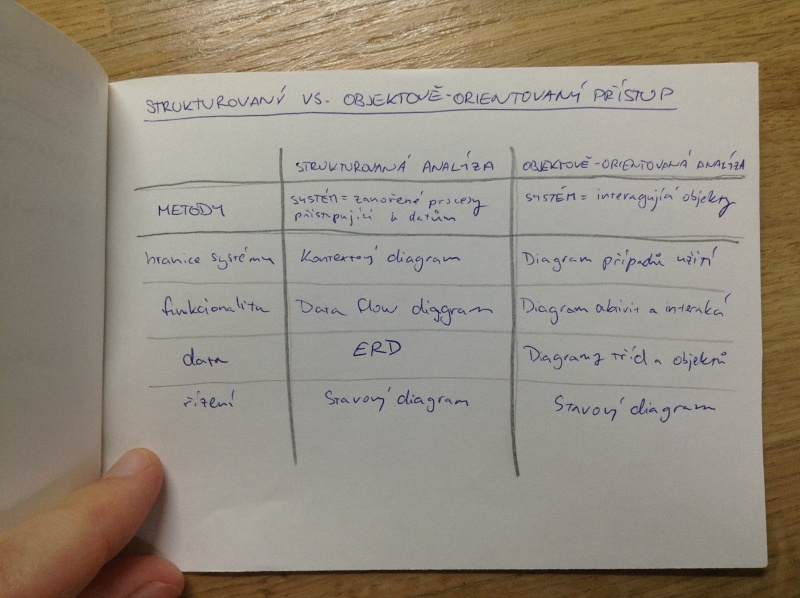 STRUKTUROVANÝ VS. OBJEKTOVĚ-ORIENTOVANÝ PŘÍSTUP
STRUKTUROVANÁ ANALÝZA OBJEKTOVĚ-ORIENTOVANÁ ANALÝZA
METODY SYSTÉM = zanořené procesy přistupující k datům SYSTÉM = interagující objekty
hranice systému Kontextový diagram Diagram případů užití
funkcionalita Data flow diagram Diagram aktivit a interakcí
data ERD Diagramy tříd a objektů
řízení Stavový diagram Stavový diagram